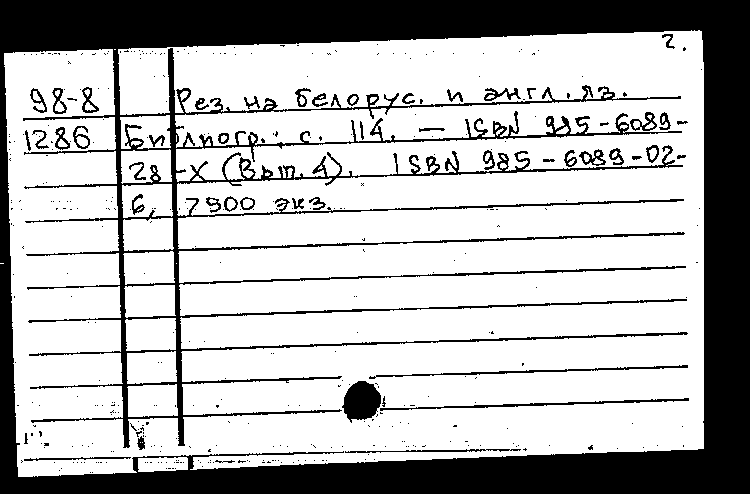 2.
98-8 Рез. на белорус. и англ. яз.
1286 Библиогр.: с. 114. — ISBN 985-6089-
28-X (Вып. 4). ISBN 985-6089-02-
6, 7500 экз.